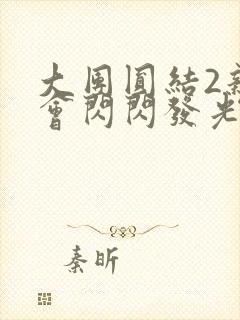 大団圓結2
會閃閃發光
秦昕